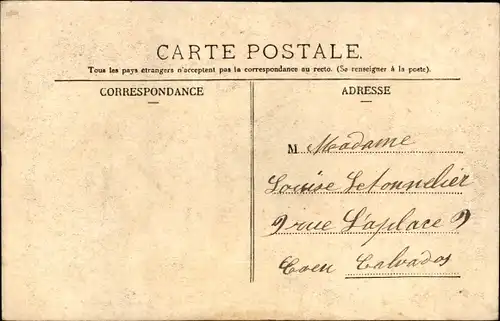 CARTE POSTALE.
Tous les pays étrangers n'acceptent pas la correspondance au recto. (Se renseigner à la poste).
CORRESPONDANCE
ADRESSE
M Madame
Louise Letonnelier
9 rue L'aplace 9
Caen Calvados